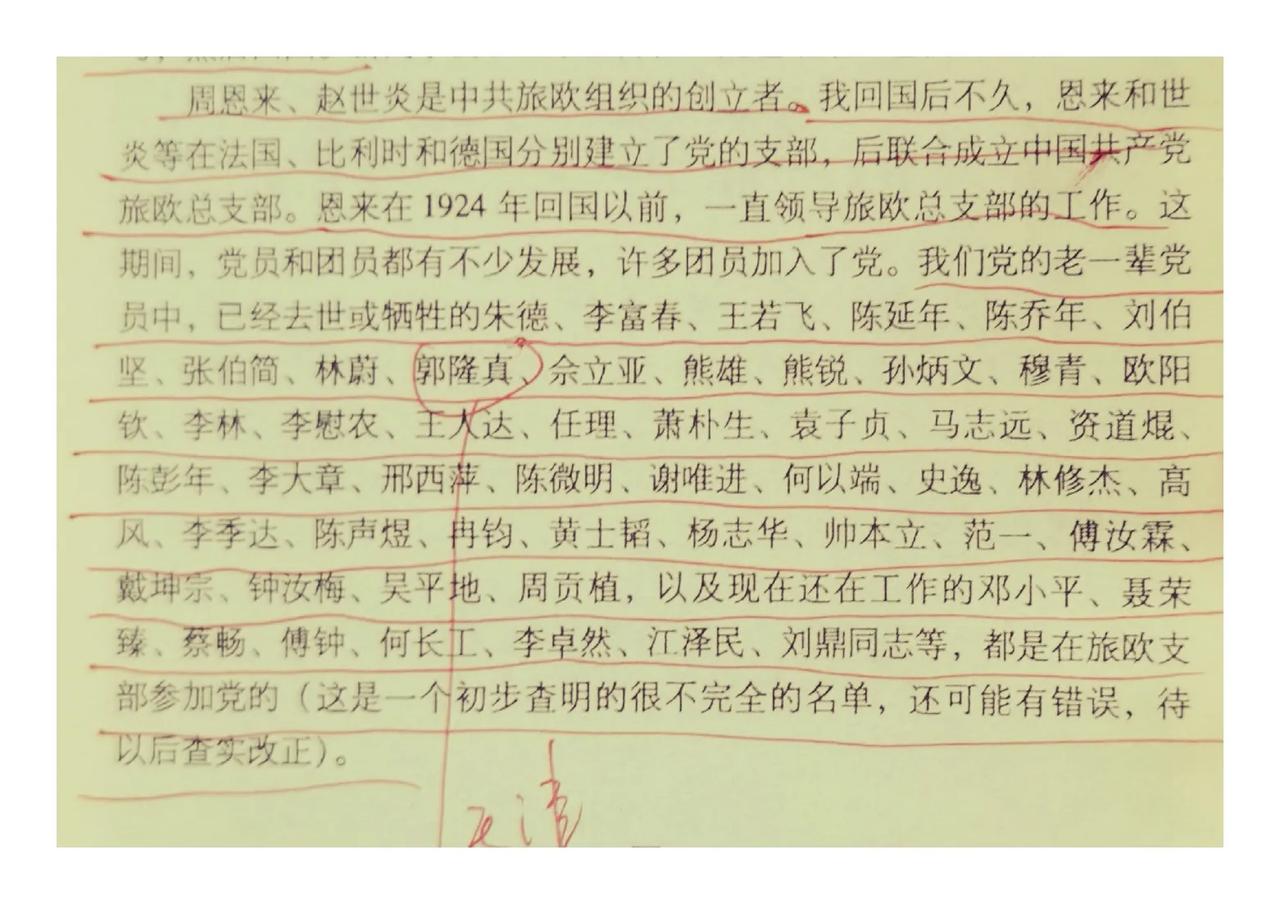 周恩来、赵世炎是中共旅欧组织的创立者。我回国后不久，恩来和世
炎等在法国、比利时和德国分别建立了党的支部，后联合成立中国共产党
旅欧总支部。恩来在1924年回国以前，一直领导旅欧总支部的工作。这
期间，党员和团员都有不少发展，许多团员加入了党。我们党的老一辈党
员中，已经去世或牺牲的朱德、李富春、王若飞、陈延年、陈乔年、刘伯
坚、张伯简、林蔚、郭隆真、佘立亚、熊雄、熊锐、孙炳文、穆青、欧阳
钦、李林、李慰农、王人达、任理、萧朴生、袁子贞、马志远、资道焜、
陈彭年、李大章、邢西萍、陈微明、谢唯进、何以端、史逸、林修杰、高
风、李季达、陈声煜、冉钧、黄士韬、杨志华、帅本立、范一、傅汝霖、
戴坤宗、钟汝梅、吴平地、周贡植，以及现在还在工作的邓小平、聂荣
臻、蔡畅、傅钟、何长工、李卓然、江泽民、刘鼎同志等，都是在旅欧支
部参加党的（这是一个初步查明的很不完全的名单，还可能有错误，待
以后查实改正）。